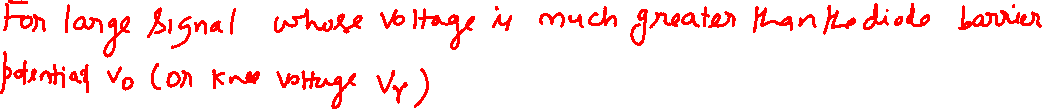 For large signal whose voltage is much greater than the diode barrier
potential V₀ (or knee voltage Vᵧ)